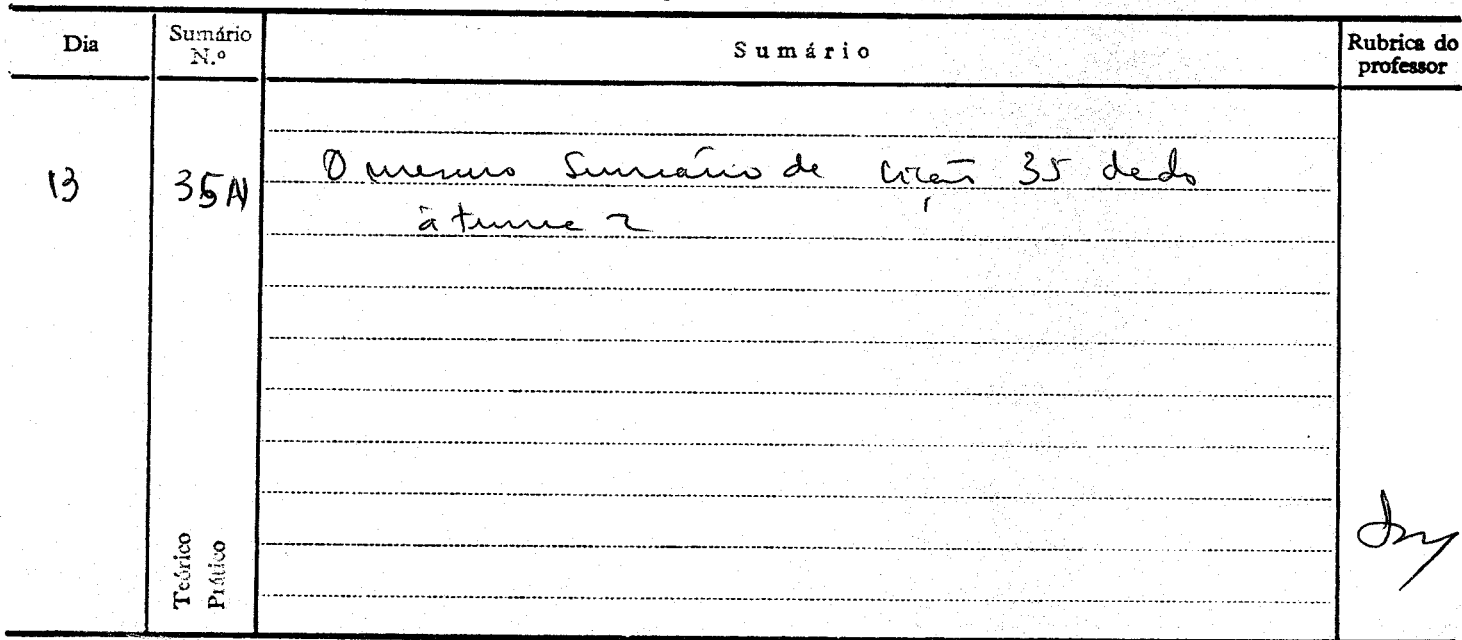 Dia
Sumário N.º
Sumário
Rubrica do professor
13
35A
O mesmo Sumário da lição 35 dado
à turma 2
Teórico
Prático